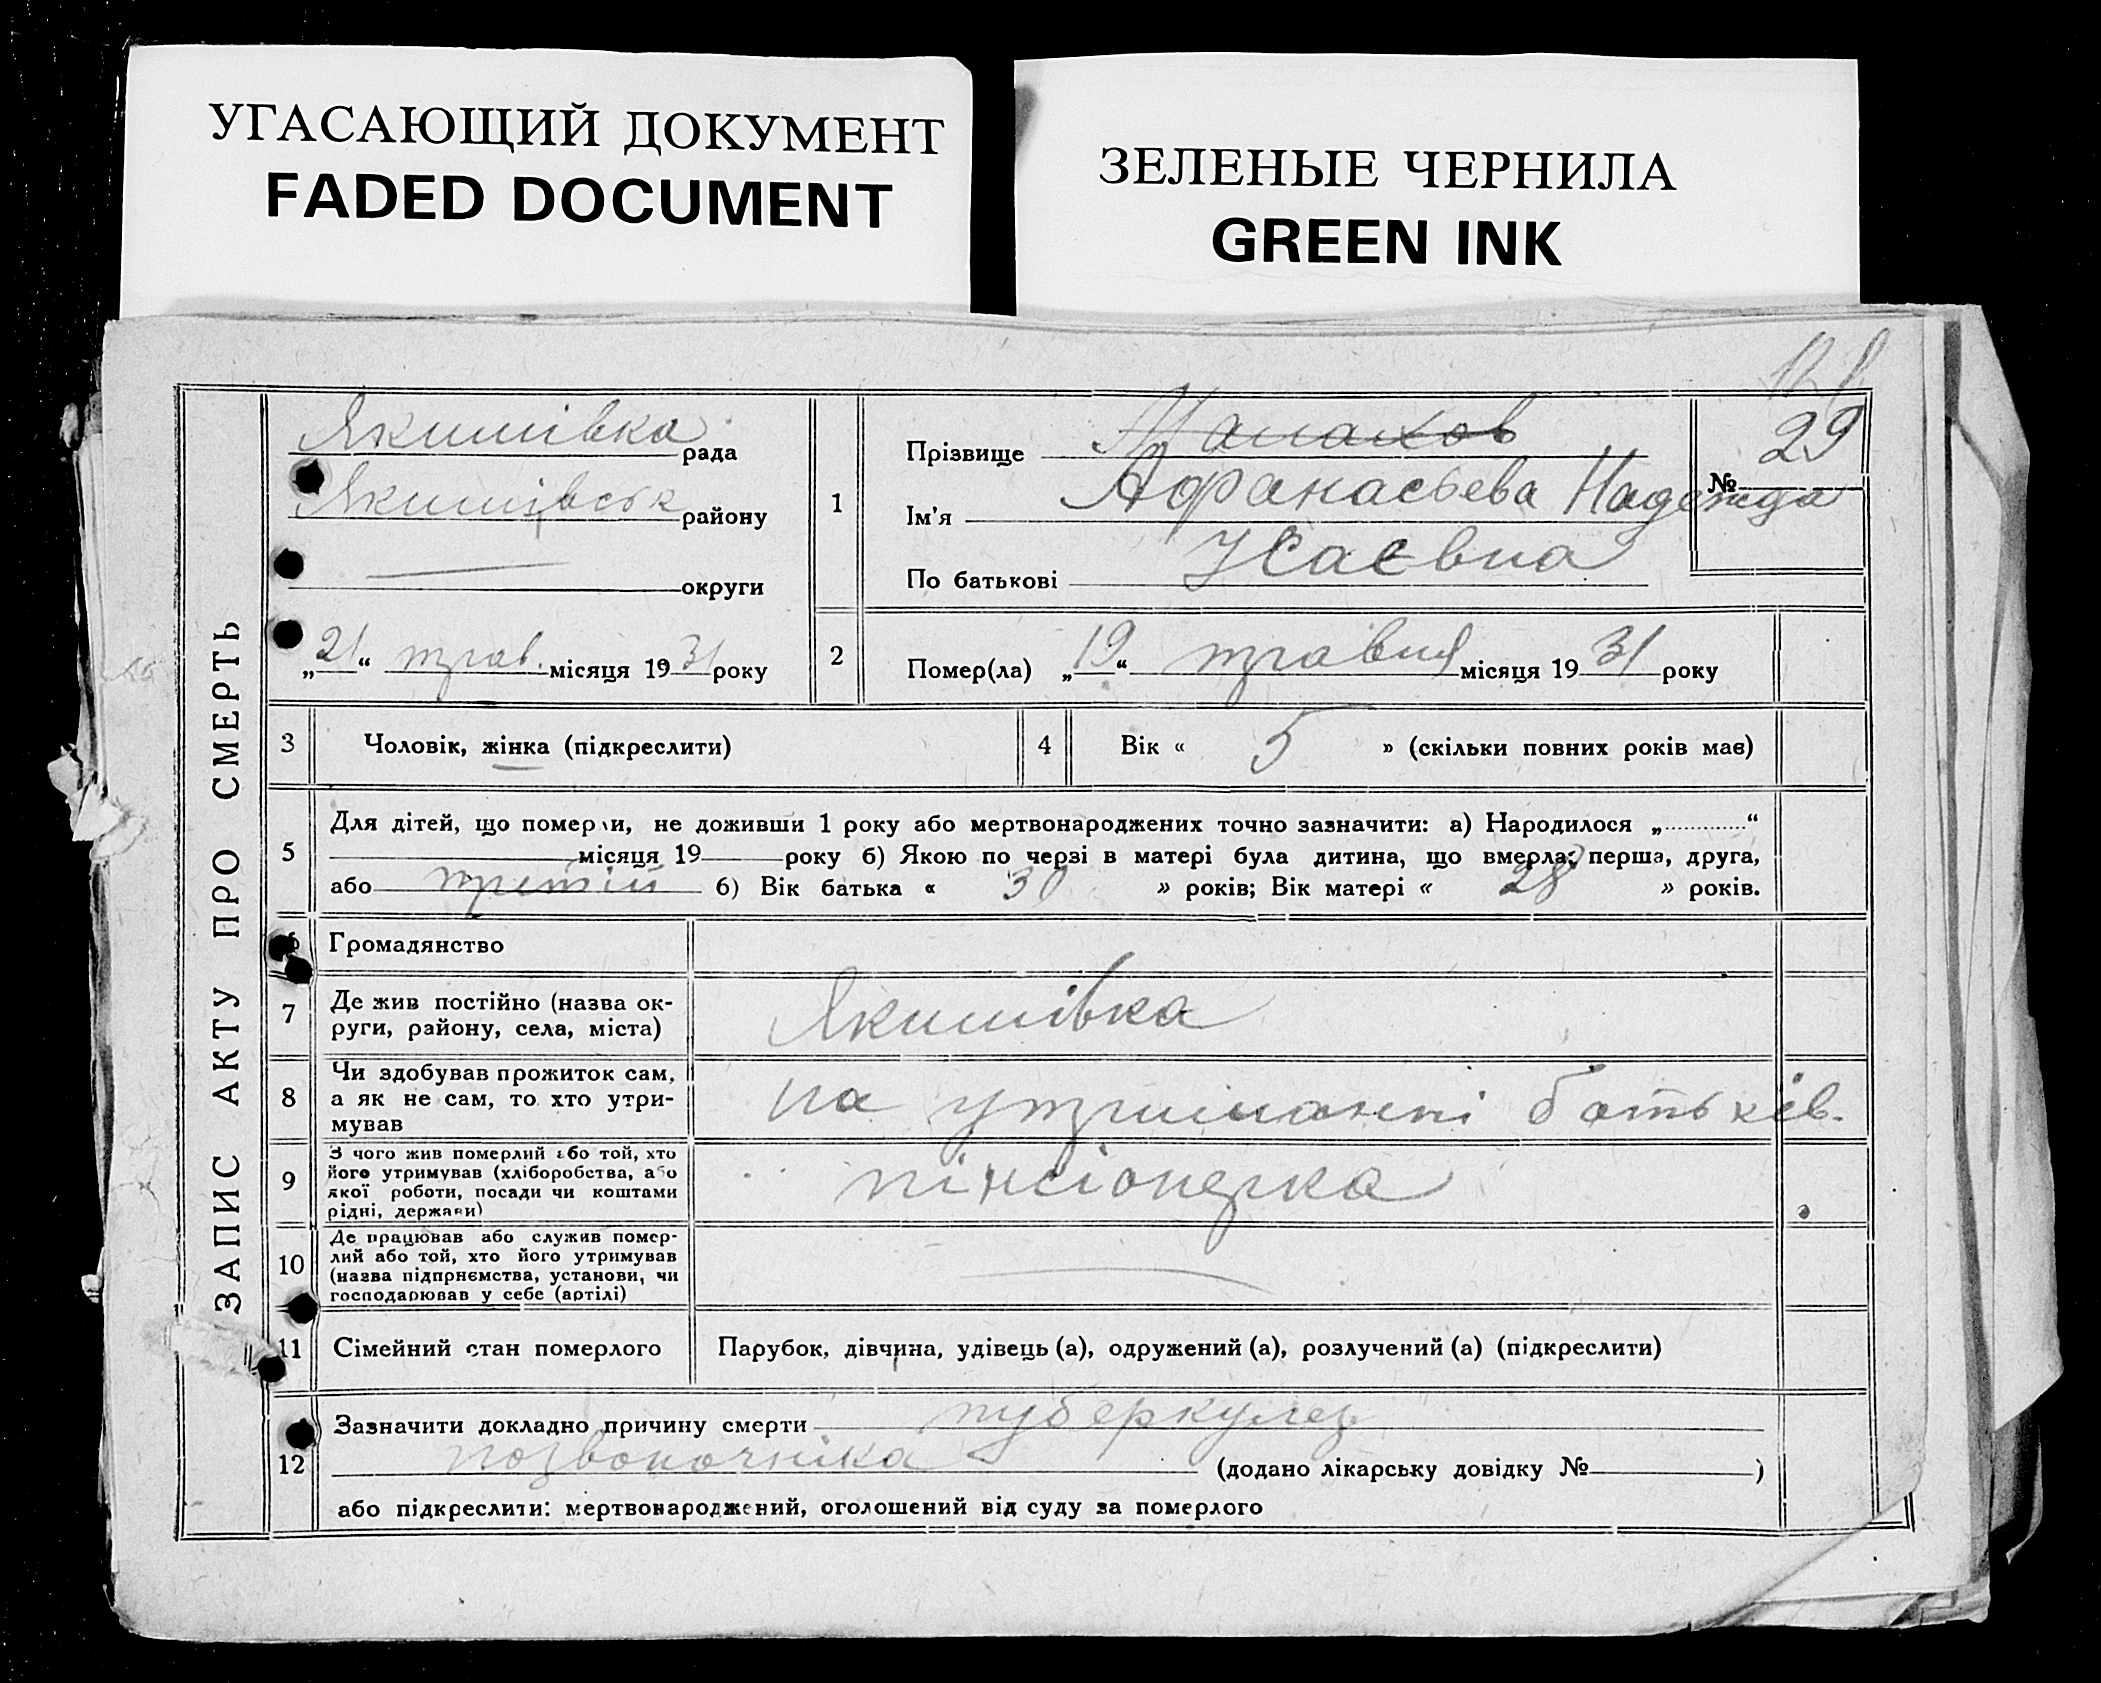 УГАСАЮЩИЙ ДОКУМЕНТ
FADED DOCUMENT
ЗЕЛЕНЫЕ ЧЕРНИЛА
GREEN INK
ЗАПИС АКТУ ПРО СМЕРТЬ
Якимівка рада
Якимівськ району
округи
„21“ трав. місяця 1931 року
№ 29
1 Прізвище
Ім'я Афанасьева Надежда
По батькові Ісаєвна
2 Помер(ла) „19“ травня місяця 1931 року
3 Чоловік, жінка (підкреслити)
4 Вік « 5 » (скільки повних років має)
5 Для дітей, що померли, не доживши 1 року або мертвонароджених точно зазначити: а) Народилося „ “
місяця 19 року б) Якою по черзі в матері була дитина, що вмерла; перша, друга,
або третій б) Вік батька « 30 » років; Вік матері « 28 » років.
6 Громадянство
7 Де жив постійно (назва ок-
руги, району, села, міста)
Якимівка
8 Чи здобував прожиток сам,
а як не сам, то хто утри-
мував
на утриманні батьків.
9 З чого жив померлий або той, хто
його утримував (хліборобства, або
якої роботи, посади чи коштами
рідні, держави)
пінсіонерка
10 Де працював або служив помер-
лий або той, хто його утримував
(назва підприємства, установи, чи
господарював у себе (артілі)
11 Сімейний стан померлого
Парубок, дівчина, удівець (а), одружений (а), розлучений (а) (підкреслити)
12 Зазначити докладно причину смерти туберкулез
позвоночніка (додано лікарську довідку № )
або підкреслити: мертвонароджений, оголошений від суду за померлого